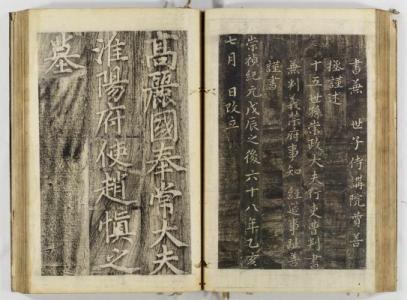 書兼 世子侍講院贊善
拯謹述
十五世孫崇政大夫行吏曹判書
兼判義禁府事知 經筵事趾善
謹書
崇禎紀元戊辰之後六十八年乙亥
七月 日改立
高麗國奉常大夫
淮陽府使趙愼之
墓